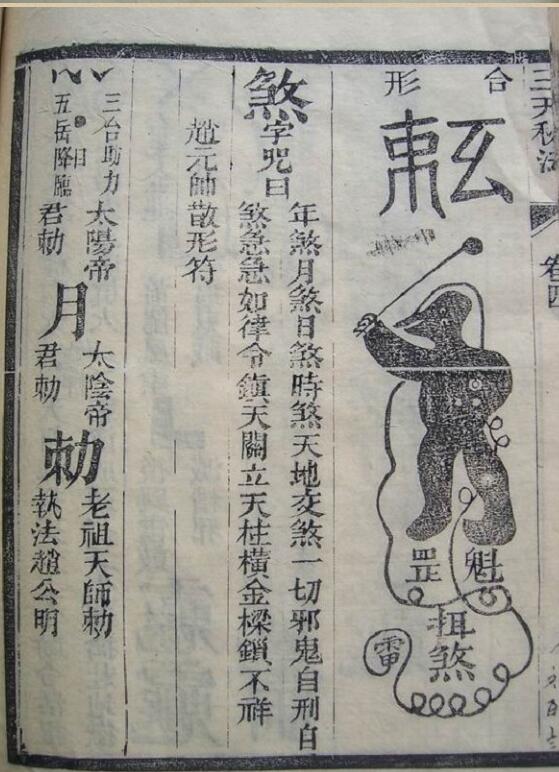 三天秘法
卷四
合形
玄
魁罡
挕煞
雷
煞字咒曰
年煞月煞日煞時煞天地交煞一切邪鬼自刑自
煞急急如律令鎮天關立天柱橫金樑鎖不祥
趙元帥散形符
三台助力
五岳降臨
日
太陽帝
君勅
月
太陰帝
君勅
勅
老祖天師勅
執法趙公明